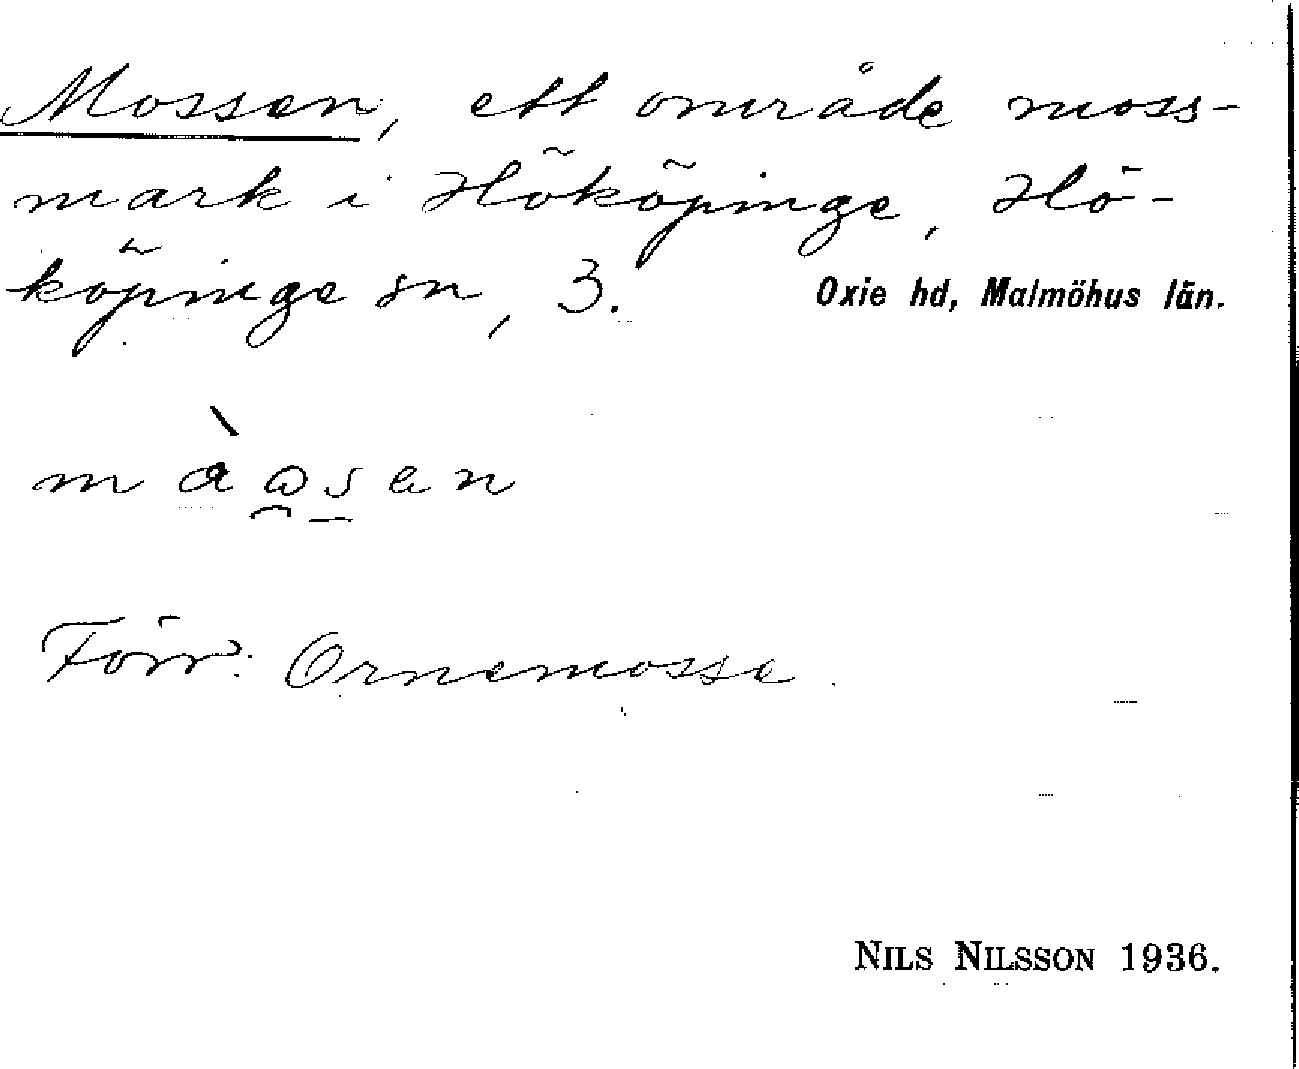 Mossen, ett område moss-
mark i Hököpinge, Hö-
köpinge sn, 3. Oxie hd, Malmöhus län.
màɷ̯s̲en
Förr: Ornemosse.
NILS NILSSON 1936.